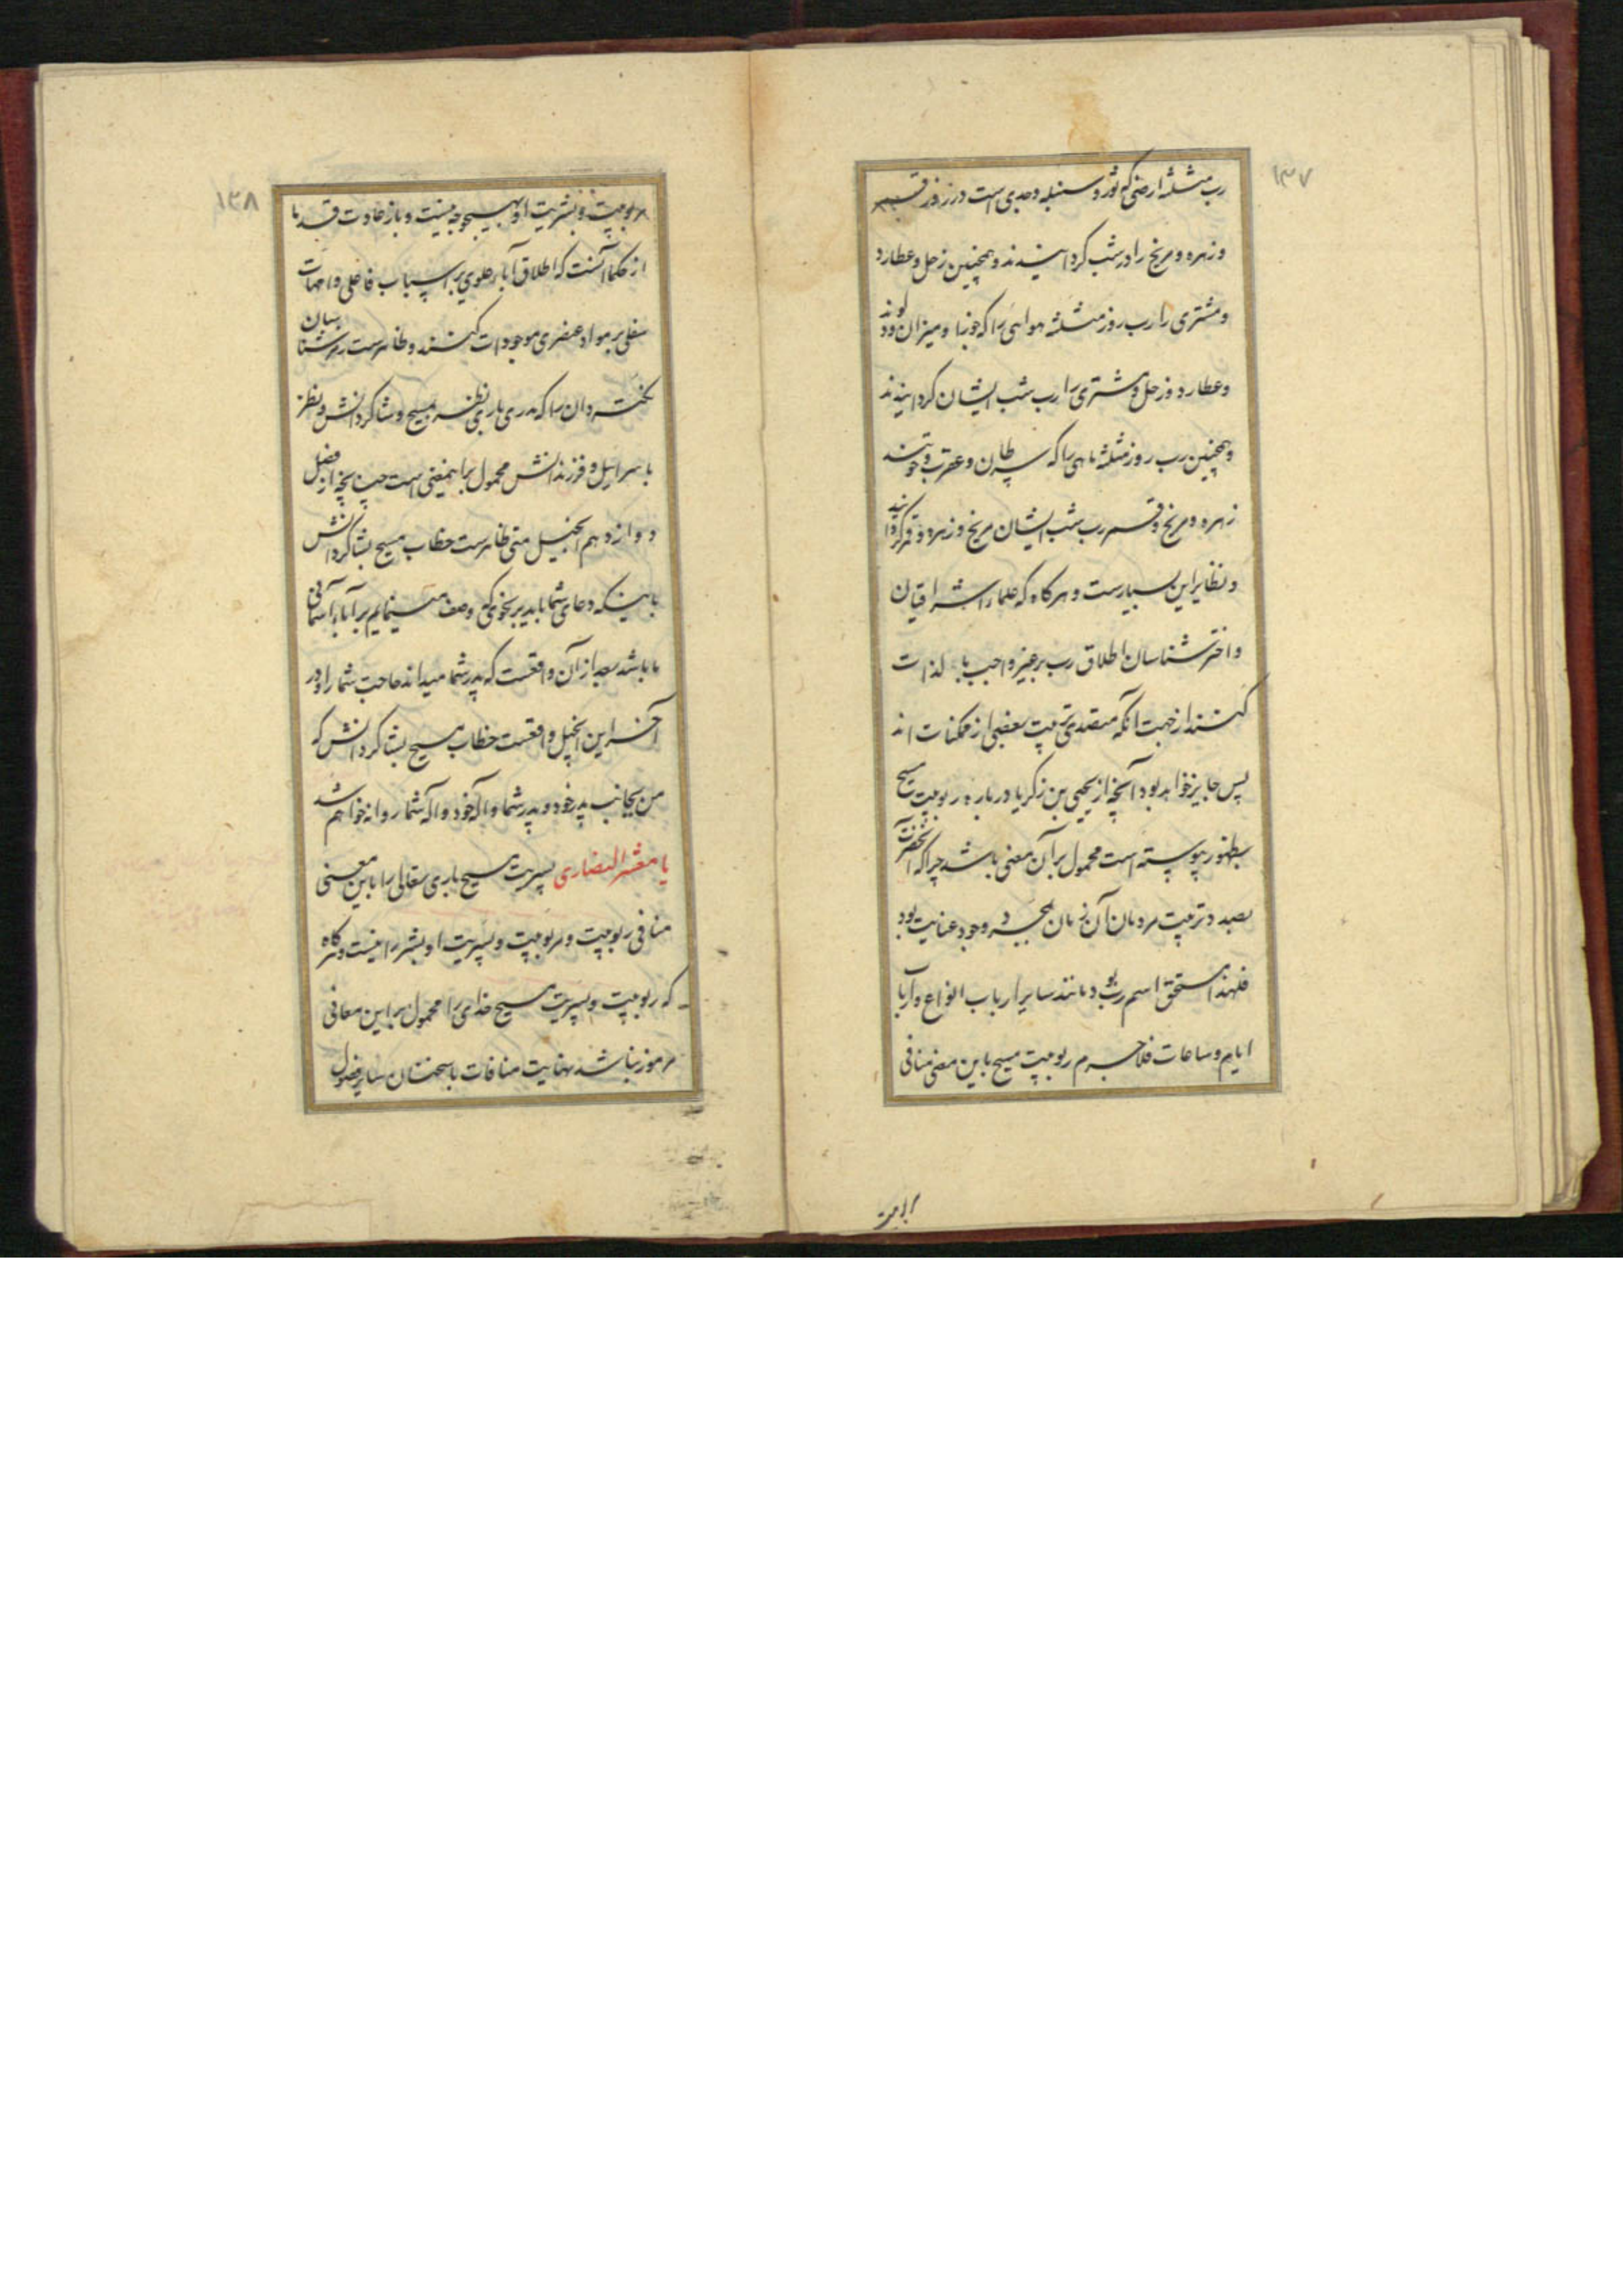 ۱۳۷
رب مثلثه ارضی که ثور و سنبله و جدی است در روز قمر
و زهره و مریخ را در شب گردانیدند و همچنین زحل و عطارد
و مشتری را رب روز مثلثه هوایی را که جوزا و میزان و دلوند
و عطارد و زحل و مشتری را رب شب ایشان گردانیدند
و همچنین رب روز مثلثه مایی را که سرطان و عقرب و حوتند
زهره و مریخ و قمر رب شب ایشان مریخ و زهره و قمر گردانید
و نظایر این بسیارست و هرگاه که علماء اشراقیان
و اخترشناسان اطلاق رب بر غیر واجب بالذات
کنند از جهت آنکه متصدی تربیت بعضی از ممکنات اند
پس جایز خواهد بود آنچه از یحیی بن زکریا در باره ربوبیت مسیح
بظهور پیوسته است محمول بر آن معنی باشد چرا که آنحضرت
بصدد تربیت مردمان آن زمان وجود عنایت بود
فلهذا مستحق اسم رب بود مانند سایر ارباب انواع و ارباب
ایام و ساعات فلاجرم ربوبیت مسیح باین معنی منافی
۱۳۸
مربوبیت و بشریت او بهیچوجه نیست و باز عادت قدما
از حکما آنست که اطلاق آباء علوی بر اسباب فاعلی و امهات
سفلی بر مواد عنصری موجودات کنند و ظاهرست بر مرتبه شناسان
نکته دان را که پدری باری نظر بمسیح و شاگردانش و نظر
باسرائیل و فرزندانش محمول بر اینمعنی است چنانچه از فصل
دوازدهم انجیل متی ظاهرست خطاب مسیح بشاگردانش
باینکه دعای شما باید بر نحوی که وصف مینمایم بر آباء آسمانی
ما باشد بعد از آن واقعست که پدر شما میداند حاجت شما را و در
آخر این انجیل واقعست خطاب مسیح بشاگردانش که
من بجانب پدر خود و پدر شما و اله خود و اله شما روانه خواهم شد
یا معشر النصاری پسریت مسیح باری تعالی را باین معنی
منافی ربوبیت و مربوبیت و پسریت او بشر را نیست و هرگاه
که ربوبیت و پسریت مسیح خدای را محمول بر این معانی
مرموز نباشد نهایت منافات با سخنان سایر فصول